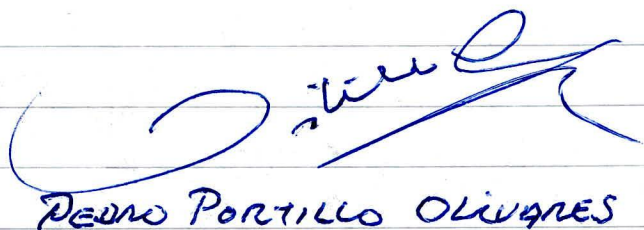 PEDRO PORTILLO OLIVARES